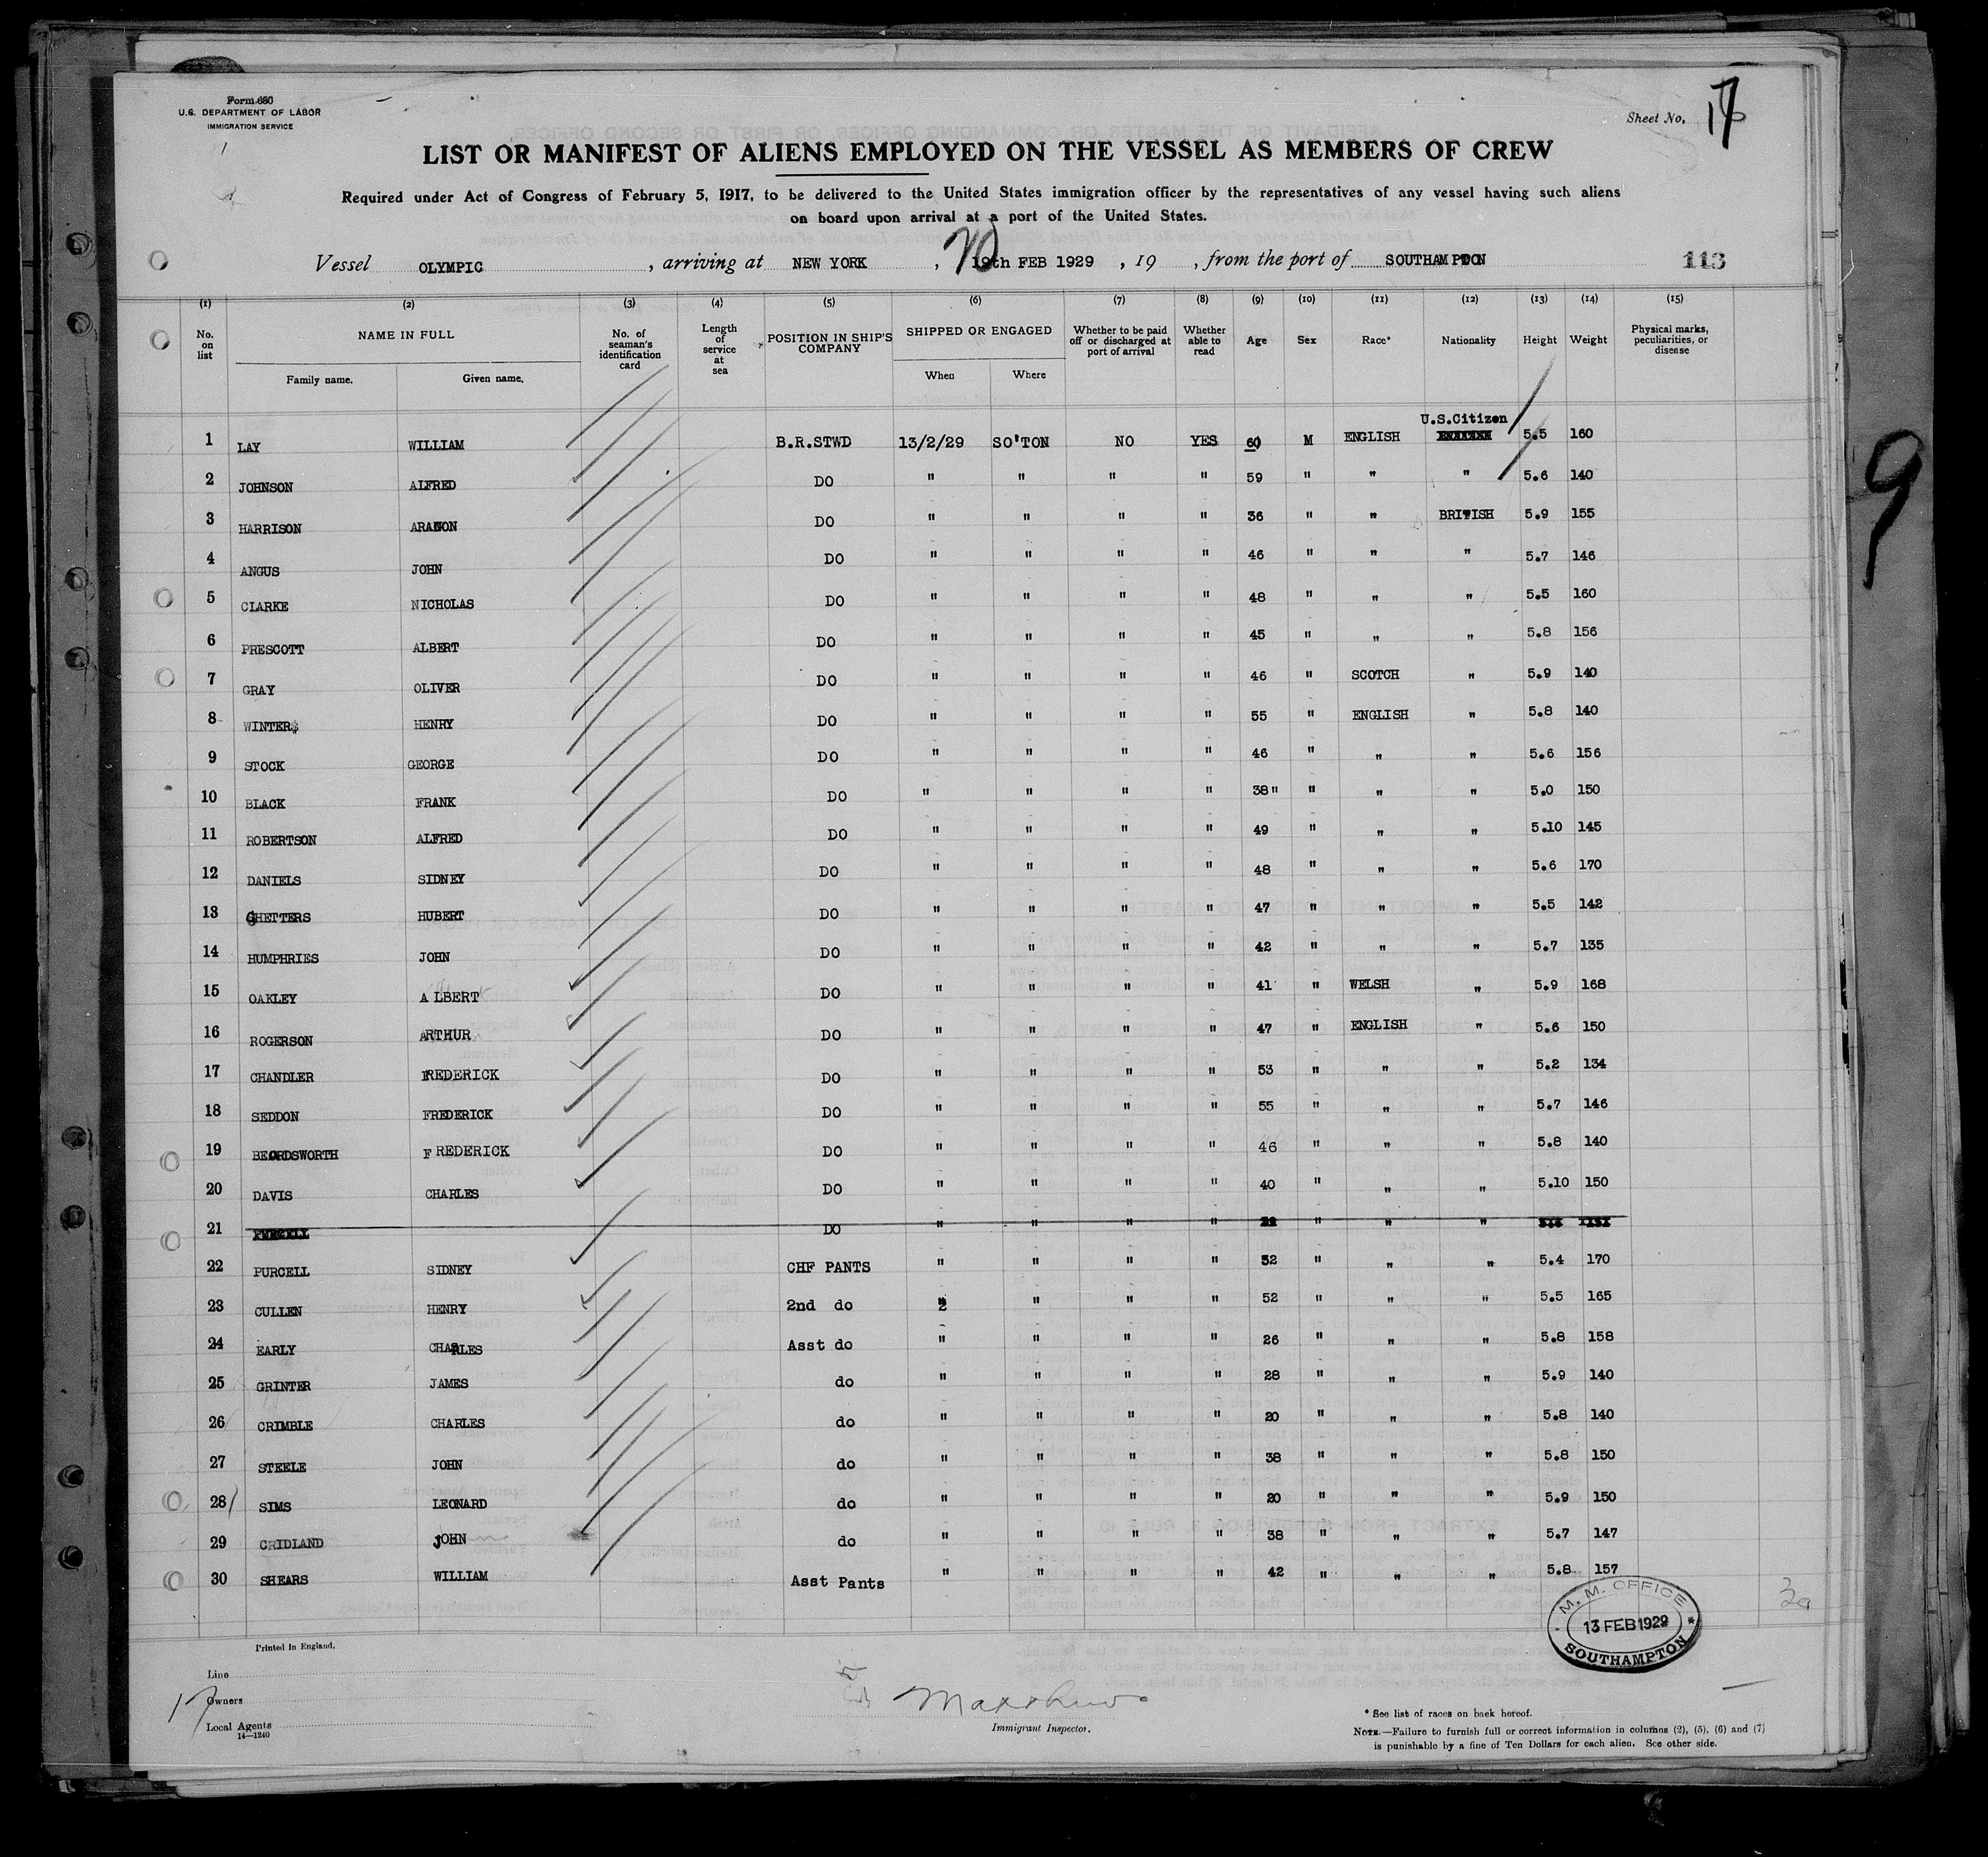 Form 680
U.S. DEPARTMENT OF LABOR
IMMIGRATION SERVICE
Sheet No. 17
LIST OR MANIFEST OF ALIENS EMPLOYED ON THE VESSEL AS MEMBERS OF CREW
Required under Act of Congress of February 5, 1917, to be delivered to the United States immigration officer by the representatives of any vessel having such aliens
on board upon arrival at a port of the United States.
Vessel OLYMPIC, arriving at NEW YORK, 20 19th FEB 1929, 19 , from the port of SOUTHAMPTON 113
(1) (2) (3) (4) (5) (6) (7) (8) (9) (10) (11) (12) (13) (14) (15)
No. on list NAME IN FULL Family name. Given name. No. of seaman's identification card Length of service at sea POSITION IN SHIP'S COMPANY SHIPPED OR ENGAGED When Where Whether to be paid off or discharged at port of arrival Whether able to read Age Sex Race* Nationality Height Weight Physical marks, peculiarities, or disease
U.S.Citizen
1 LAY WILLIAM B.R.STWD 13/2/29 SO'TON NO YES 60 M ENGLISH 5.5 160
2 JOHNSON ALFRED DO " " " " 59 " " " 5.6 140
3 HARRISON DO " " " " 36 " " BRITISH 5.9 155
4 ANGUS JOHN DO " " " " 46 " " " 5.7 146
5 CLARKE NICHOLAS DO " " " " 48 " " " 5.5 160
6 PRESCOTT ALBERT DO " " " " 45 " " " 5.8 156
7 GRAY OLIVER DO " " " " 46 " SCOTCH " 5.9 140
8 WINTERS HENRY DO " " " " 55 " ENGLISH " 5.8 140
9 STOCK GEORGE DO " " " " 46 " " " 5.6 156
10 BLACK FRANK DO " " " " 38 " " " " 5.0 150
11 ROBERTSON ALFRED DO " " " " 49 " " " 5.10 145
12 DANIELS SIDNEY DO " " " " 48 " " " 5.6 170
13 GHETTERS HUBERT DO " " " " 47 " " " 5.5 142
14 HUMPHRIES JOHN DO " " " " 42 " " " 5.7 135
15 OAKLEY A LBERT DO " " " " 41 " WELSH " 5.9 168
16 ROGERSON ARTHUR DO " " " " 47 " ENGLISH " 5.6 150
17 CHANDLER FREDERICK DO " " " " 53 " " " 5.2 134
18 SEDDON FREDERICK DO " " " " 55 " " " 5.7 146
19 BEARDSWORTH F REDERICK DO " " " " 46 " " " 5.8 140
20 DAVIS CHARLES DO " " " " 40 " " " 5.10 150
21 PURCELL DO " " " " " " "
22 PURCELL SIDNEY CHF PANTS " " " " 52 " " " 5.4 170
23 CULLEN HENRY 2nd do " " " " 52 " " " 5.5 165
24 EARLY CHARLES Asst do " " " " 26 " " " 5.8 158
25 GRINTER JAMES do " " " " 28 " " " 5.9 140
26 CRIMBLE CHARLES do " " " " 20 " " " 5.8 140
27 STEELE JOHN do " " " " 38 " " " 5.8 150
28 SIMS LEONARD do " " " " 20 " " " 5.9 150
29 CRIDLAND JOHN do " " " " 38 " " " 5.7 147
30 SHEARS WILLIAM Asst Pants " " " " 42 " " " 5.8 157
9
M. M. OFFICE
13 FEB 1929
SOUTHAMPTON
Printed in England.
Line
17 Owners
Local Agents
14—1240
Matthews
Immigrant Inspector.
* See list of races on back hereof.
NOTE.—Failure to furnish full or correct information in columns (2), (5), (6) and (7)
is punishable by a fine of Ten Dollars for each alien. See other side.